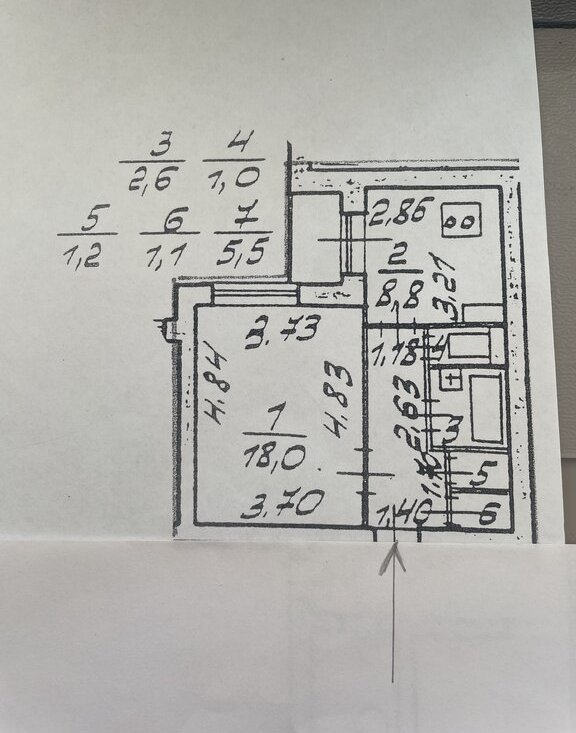 3 4
2,6 1,0
5 6 7
1,2 1,1 5,5
2,86
2
8,8
3,21
3.73
1,18
4
4.84
4.83
2,63
3
1
18,0
1,70
5
3.70
1,40
6